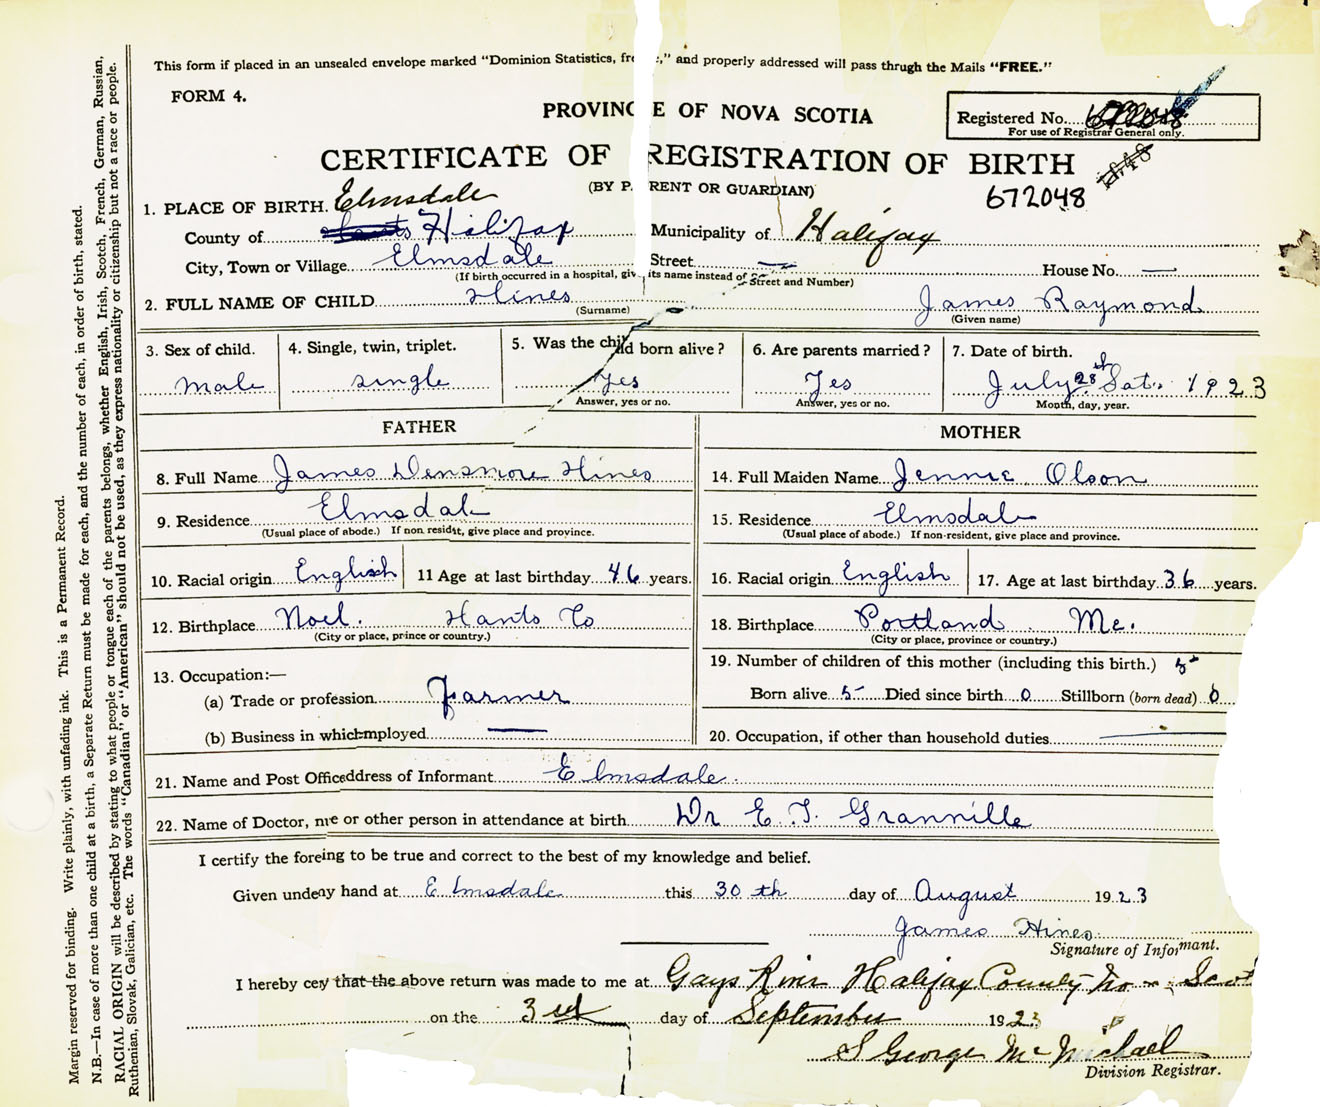 This form if placed in an unsealed envelope marked "Dominion Statistics, fre ;," and properly addressed will pass thrugh the Mails "FREE."
FORM 4.
PROVINCE OF NOVA SCOTIA
Registered No.
For use of Registrar General only.
CERTIFICATE OF REGISTRATION OF BIRTH
(BY PARENT OR GUARDIAN)
672048
1. PLACE OF BIRTH. Elmsdale
County of Halifax Municipality of Halifax
City, Town or Village Elmsdale Street — House No. —
(If birth occurred in a hospital, give its name instead of Street and Number)
2. FULL NAME OF CHILD Hines James Raymond
(Surname) (Given name)
3. Sex of child. 4. Single, twin, triplet. 5. Was the child born alive? 6. Are parents married? 7. Date of birth.
male single yes Yes July 28th Sat. 1923
Answer, yes or no. Answer, yes or no. Month, day, year.
FATHER MOTHER
8. Full Name James Densmore Hines 14. Full Maiden Name Jennie Olson
9. Residence Elmsdale 15. Residence Elmsdale
(Usual place of abode.) If non residt, give place and province. (Usual place of abode.) If non-resident, give place and province.
10. Racial origin English 11 Age at last birthday 46 years. 16. Racial origin English 17. Age at last birthday 36 years.
12. Birthplace Noel. Hants Co 18. Birthplace Portland Me.
(City or place, prince or country.) (City or place, province or country.)
19. Number of children of this mother (including this birth.) 5
13. Occupation:—
(a) Trade or profession Farmer Born alive 5 Died since birth 0 Stillborn (born dead) 0
(b) Business in which employed — 20. Occupation, if other than household duties —
21. Name and Post Officeddress of Informant Elmsdale.
22. Name of Doctor, nre or other person in attendance at birth Dr E. T. Granville
I certify the foreing to be true and correct to the best of my knowledge and belief.
Given undeay hand at Elmsdale this 30th day of August 1923
James Hines
Signature of Informant.
I hereby cey that the above return was made to me at Gays River Halifax County No - Scot
on the 3rd day of September 1923
S George McMichael
Division Registrar.
Margin reserved for binding. Write plainly, with unfading ink. This is a Permanent Record.
N.B.—In case of more than one child at a birth, a Separate Return must be made for each, and the number of each, in order of birth, stated.
RACIAL ORIGIN will be described by stating to what people or tongue each of the parents belongs, whether English, Irish, Scotch, French, German, Russian,
Ruthenian, Slovak, Galician, etc. The words "Canadian" or "American" should not be used, as they express nationality or citizenship but not a race or people.